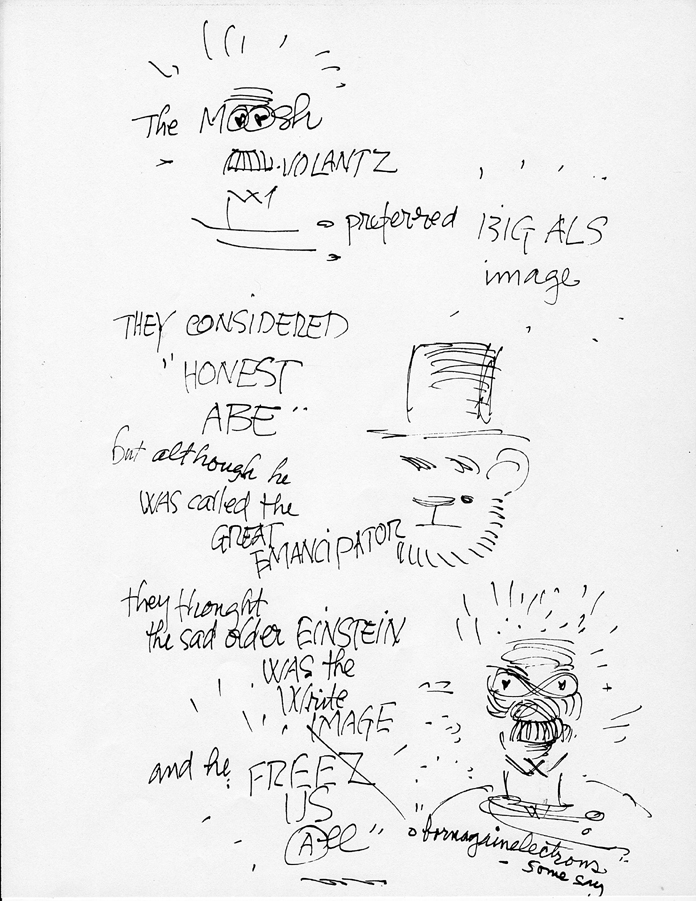 The MOOSh
VOLANTZ
preferred BIG ALS
image
THEY CONSIDERED
"HONEST
ABE"
but although he
WAS called the
GREAT
EMANCIPATOR
they thought
the sad older EINSTEIN
WAS the
Write
IMAGE
and he
FREEZ
US
All"
"bornagainelectrons"
- some say